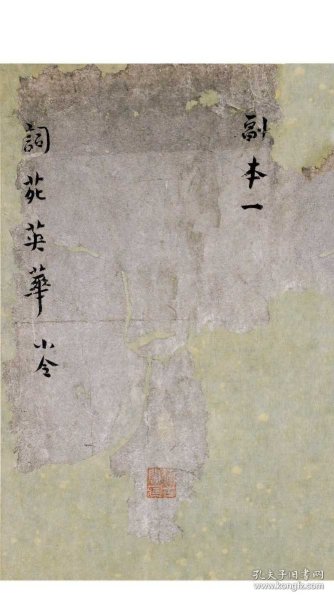 副本一
詞苑英華 小令
孔夫子旧书网